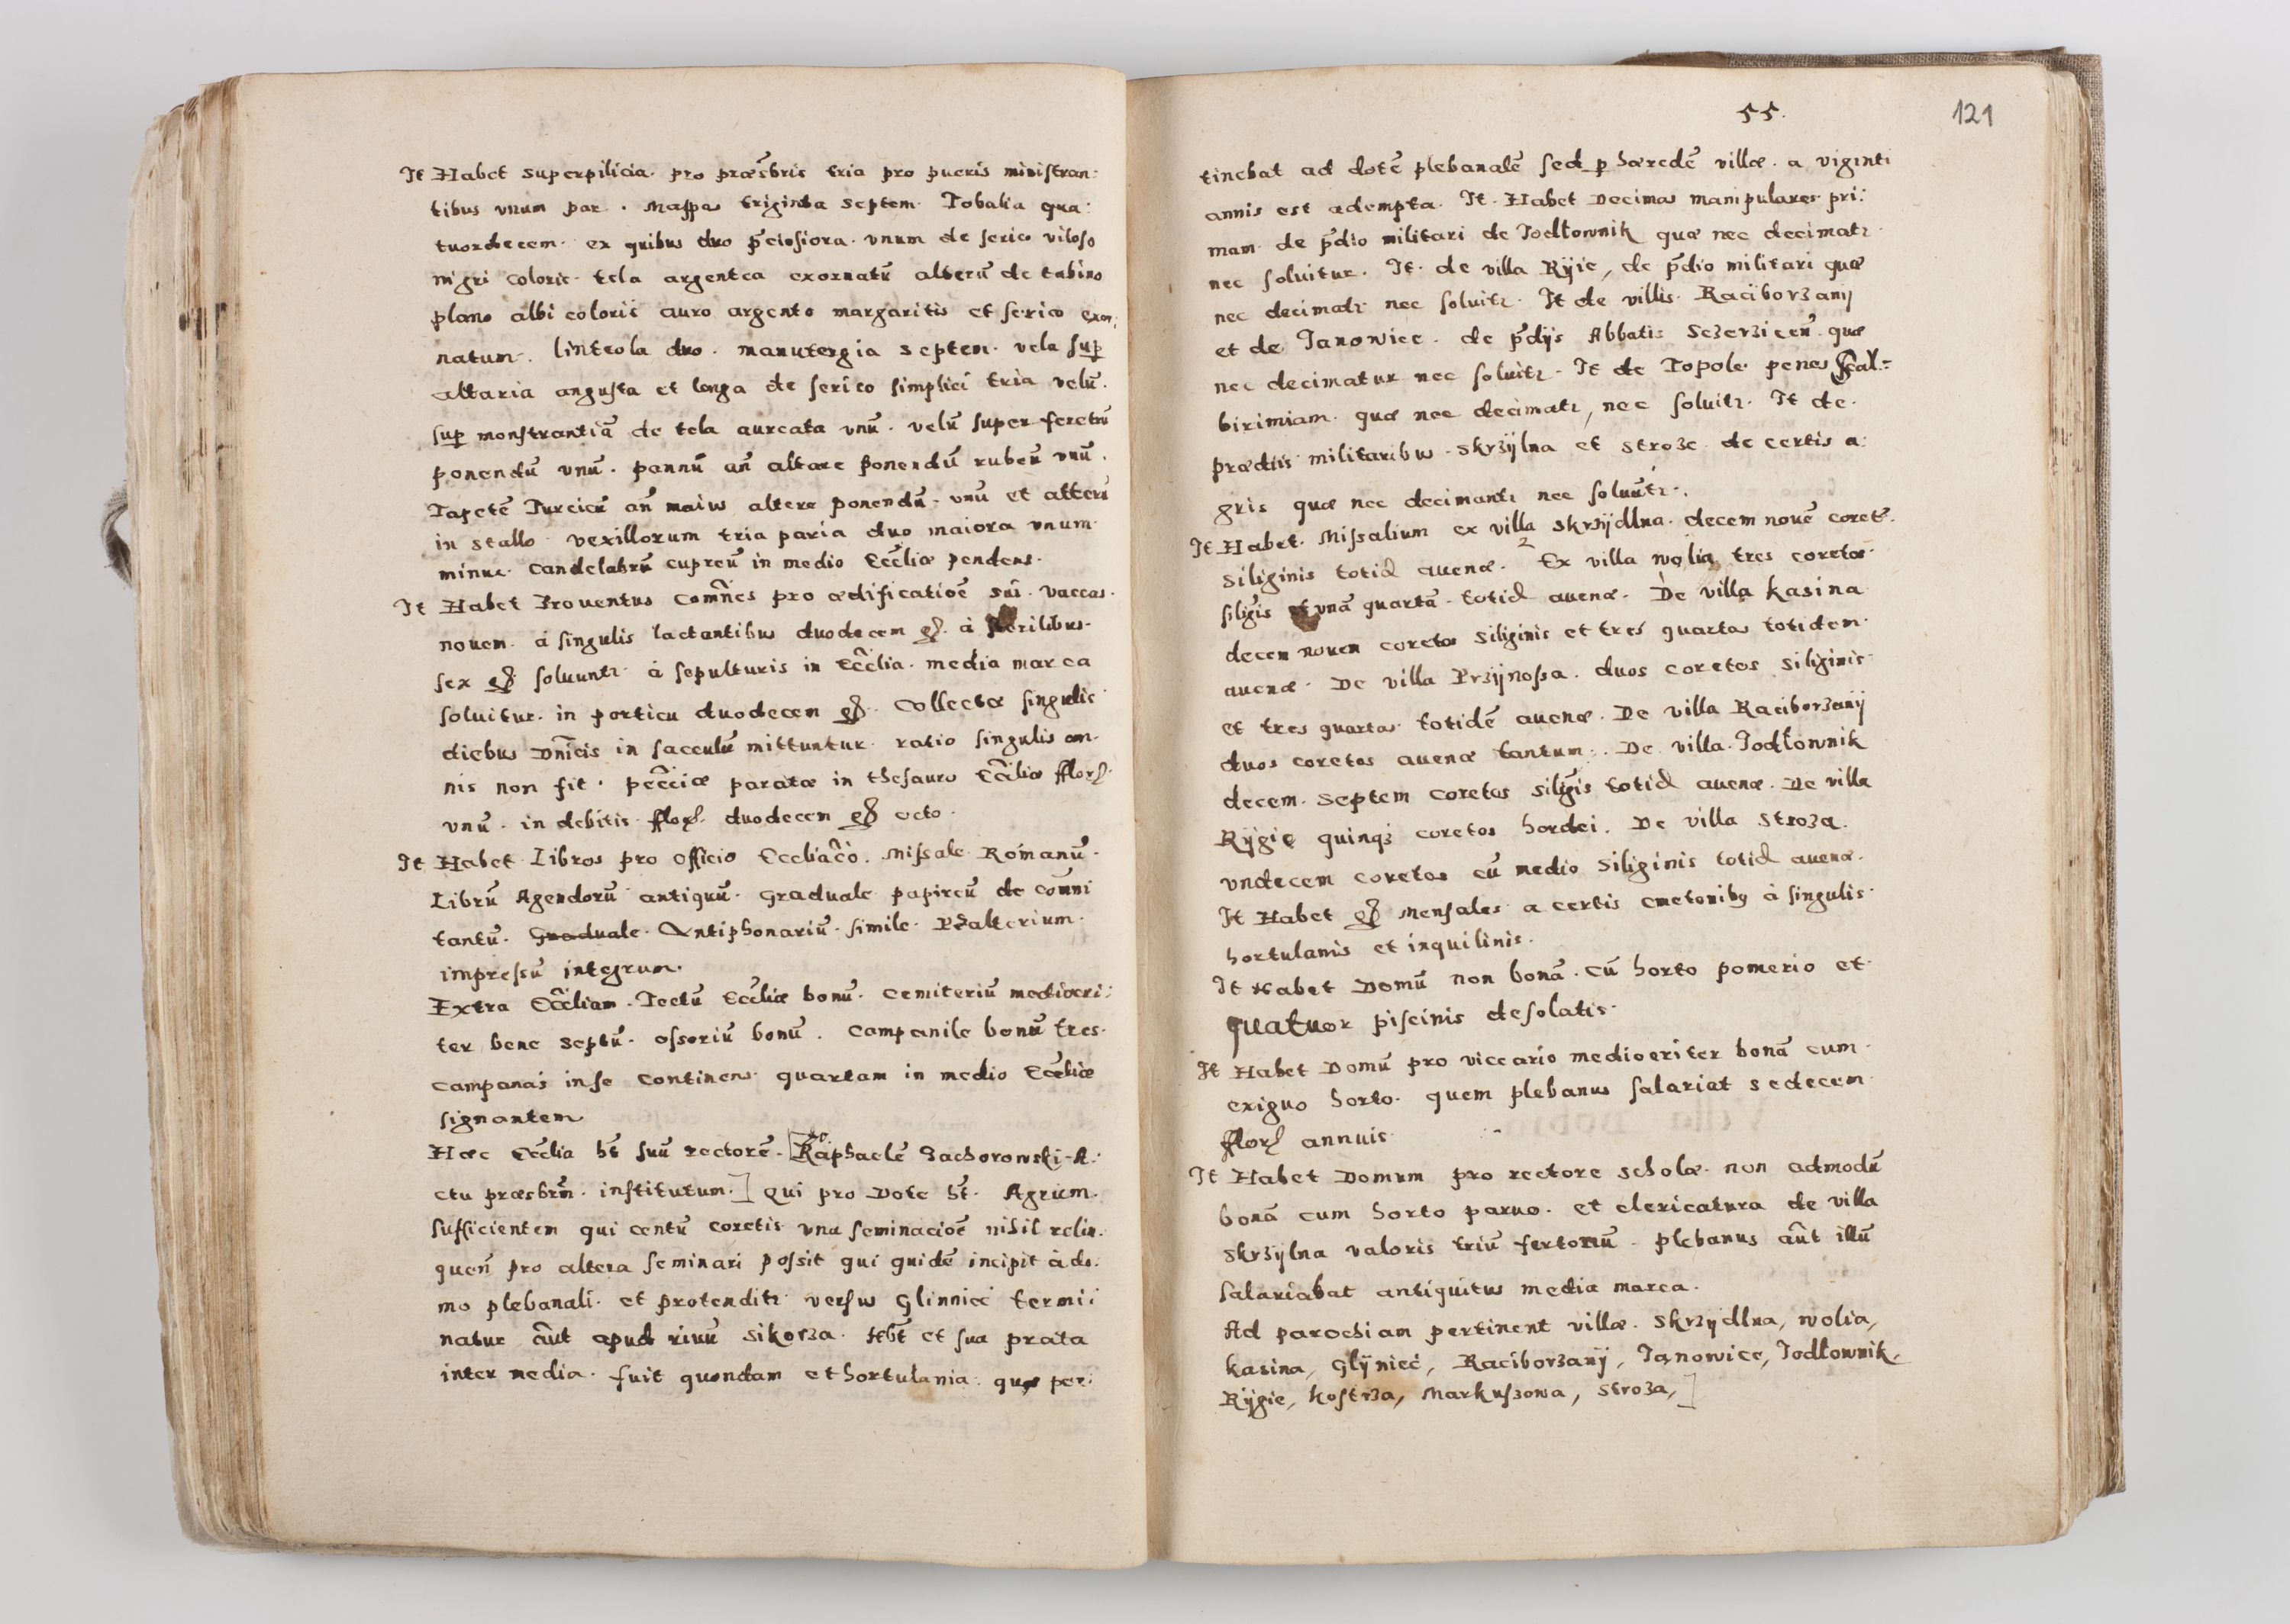 It Habet superpilicia. pro præsbris tria pro pueris ministran:
tibus vnum par. Mappas triginta septem. Tobalia qua:
tuordecem. ex quibus duo p̄ciosiora. vnum de serico viloso
nigri coloris tela argentea exornatū alterū de tabino
plano albi coloris auro argento margaritis et serico exor,
natum. linteola duo. manutergia septem. vela sup
altaria angusta et longa de serico simplici tria velū.
sup monstrantiā de tela aureata vnū. velū super feretrū
ponendū vnū. pannū añ altare ponendū rubeū vnū.
Tapetē Turcicū añ maius altare ponendū. vnū et alterū
in stallo. vexillorum tria paria duo maiora vnum
minus. Candelabrū cupreū in medio Eccliæ pendens.
It Habet Prouentus com̄nes pro ædificatioē sui. vaccas.
nouem. à singulis lactantibus duodecem gr. à sterilibus.
sex gr. soluuntr. à sepulturis in Ecclia. media marca
soluitur. in porticu duodecem gr. Collectæ singulis
diebus Dnicis in sacculū mittuntur. ratio singulis an-
nis non fit. peccciæ paratæ in thesauro Eccliæ fflor.
vnū. in debitis. fflor. duodecem gr octo.
It Habet Libros pro officio Eccliaco. Missale Romanū.
Librū Agendorū antiquū. Graduale papireū de com̄ni
tantū. Graduale. Antiphonariū. simile. Psalterium.
impressū integrum.
Extra Eccliam. Tectū Eccliæ bonū. Cemiteriū mediocri:
ter bene septū. ossoriū bonū. Campanile bonū tres.
campanas in se continens. quartam in medio Eccliæ
signantem
Hæc Ecclia ht̄ suū rectorē. [Raphaelē Zachorowski A:
ctu præsbrm̄. institutum.] Qui pro Dote ht̄. Agrum.
sufficientem qui centū coretis vna seminacioē nihil relin.
quen̄ pro altera seminari possit qui quidē incipit à do.
mo plebanali. et protenditr versus Glinnice termi:
natur aūt apud riuū Sikorza. Hēt et sua prata
inter media. fuit quondam et hortulania. quæ per:
55.
121
tinebat ad dotē plebanalē sed p hæredē villæ. a viginti
annis est adempta. It. Habet Decimas manipulares. pri:
mam de p̄dio militari de Jodłownik quæ nec decimatr
nec soluitur. It. de villa Ryie, de p̄dio militari quæ
nec decimatr nec soluitr. It de villis. Raciborzany
et de Janowice. de p̄dijs Abbatis Sczerzicen̄. quæ
nec decimatur nec soluitr. It de Topole. penes Scal:
birimiam. quæ nec decimatr, nec soluitr. It de.
prædiis militaribus. Skrzylna et Stroze de certis a:
gris quæ nec decimantr nec soluūtr.
It Habet. Missalium ex villa Skrzydlna. decem nouē coretē.
siliginis totid auenæ. 2 Ex villa Wolia tres coretos.
siligis et vnā quartā. totid auenæ. De villa Kasina
decem nouem coretos siliginis et tres quartas totidem.
auenæ. De villa Przynossa. duos coretos siliginis
et tres quartas. totidē auenæ. De villa Raciborzany
duos coretos auenæ tantum. De villa. Jodłownik
decem. septem coretos siligis totid auenæ. De villa
Rygie quinqз coretos hordei. De villa Stroza.
vndecem coretos cū medio siliginis totid auenæ.
It Habet gr Mensales a certis cmetonibꝯ à singulis.
hortulanis et inquilinis.
It Habet Domū non bonā. cū horto pomerio et
quatuor piscinis desolatis.
It Habet Domū pro viccario mediocriter bonā cum.
exiguo horto. quem plebanus salariat sedecem
fflor annuis
It Habet Domum pro rectore scholæ. non admodū
bonā cum horto paruo. et clericatura de villa
Skrzylna valoris triū fertonū. plebanus aūt illū
salariabat antiquitus media marca.
Ad parochiam pertinent villæ. Skrzydlna, Wolia,
Kasina, Glyniec, Raciborzany, Janowice, Jodłownik.
Rygie, Kostrza, Markuszowa, Stroza,]